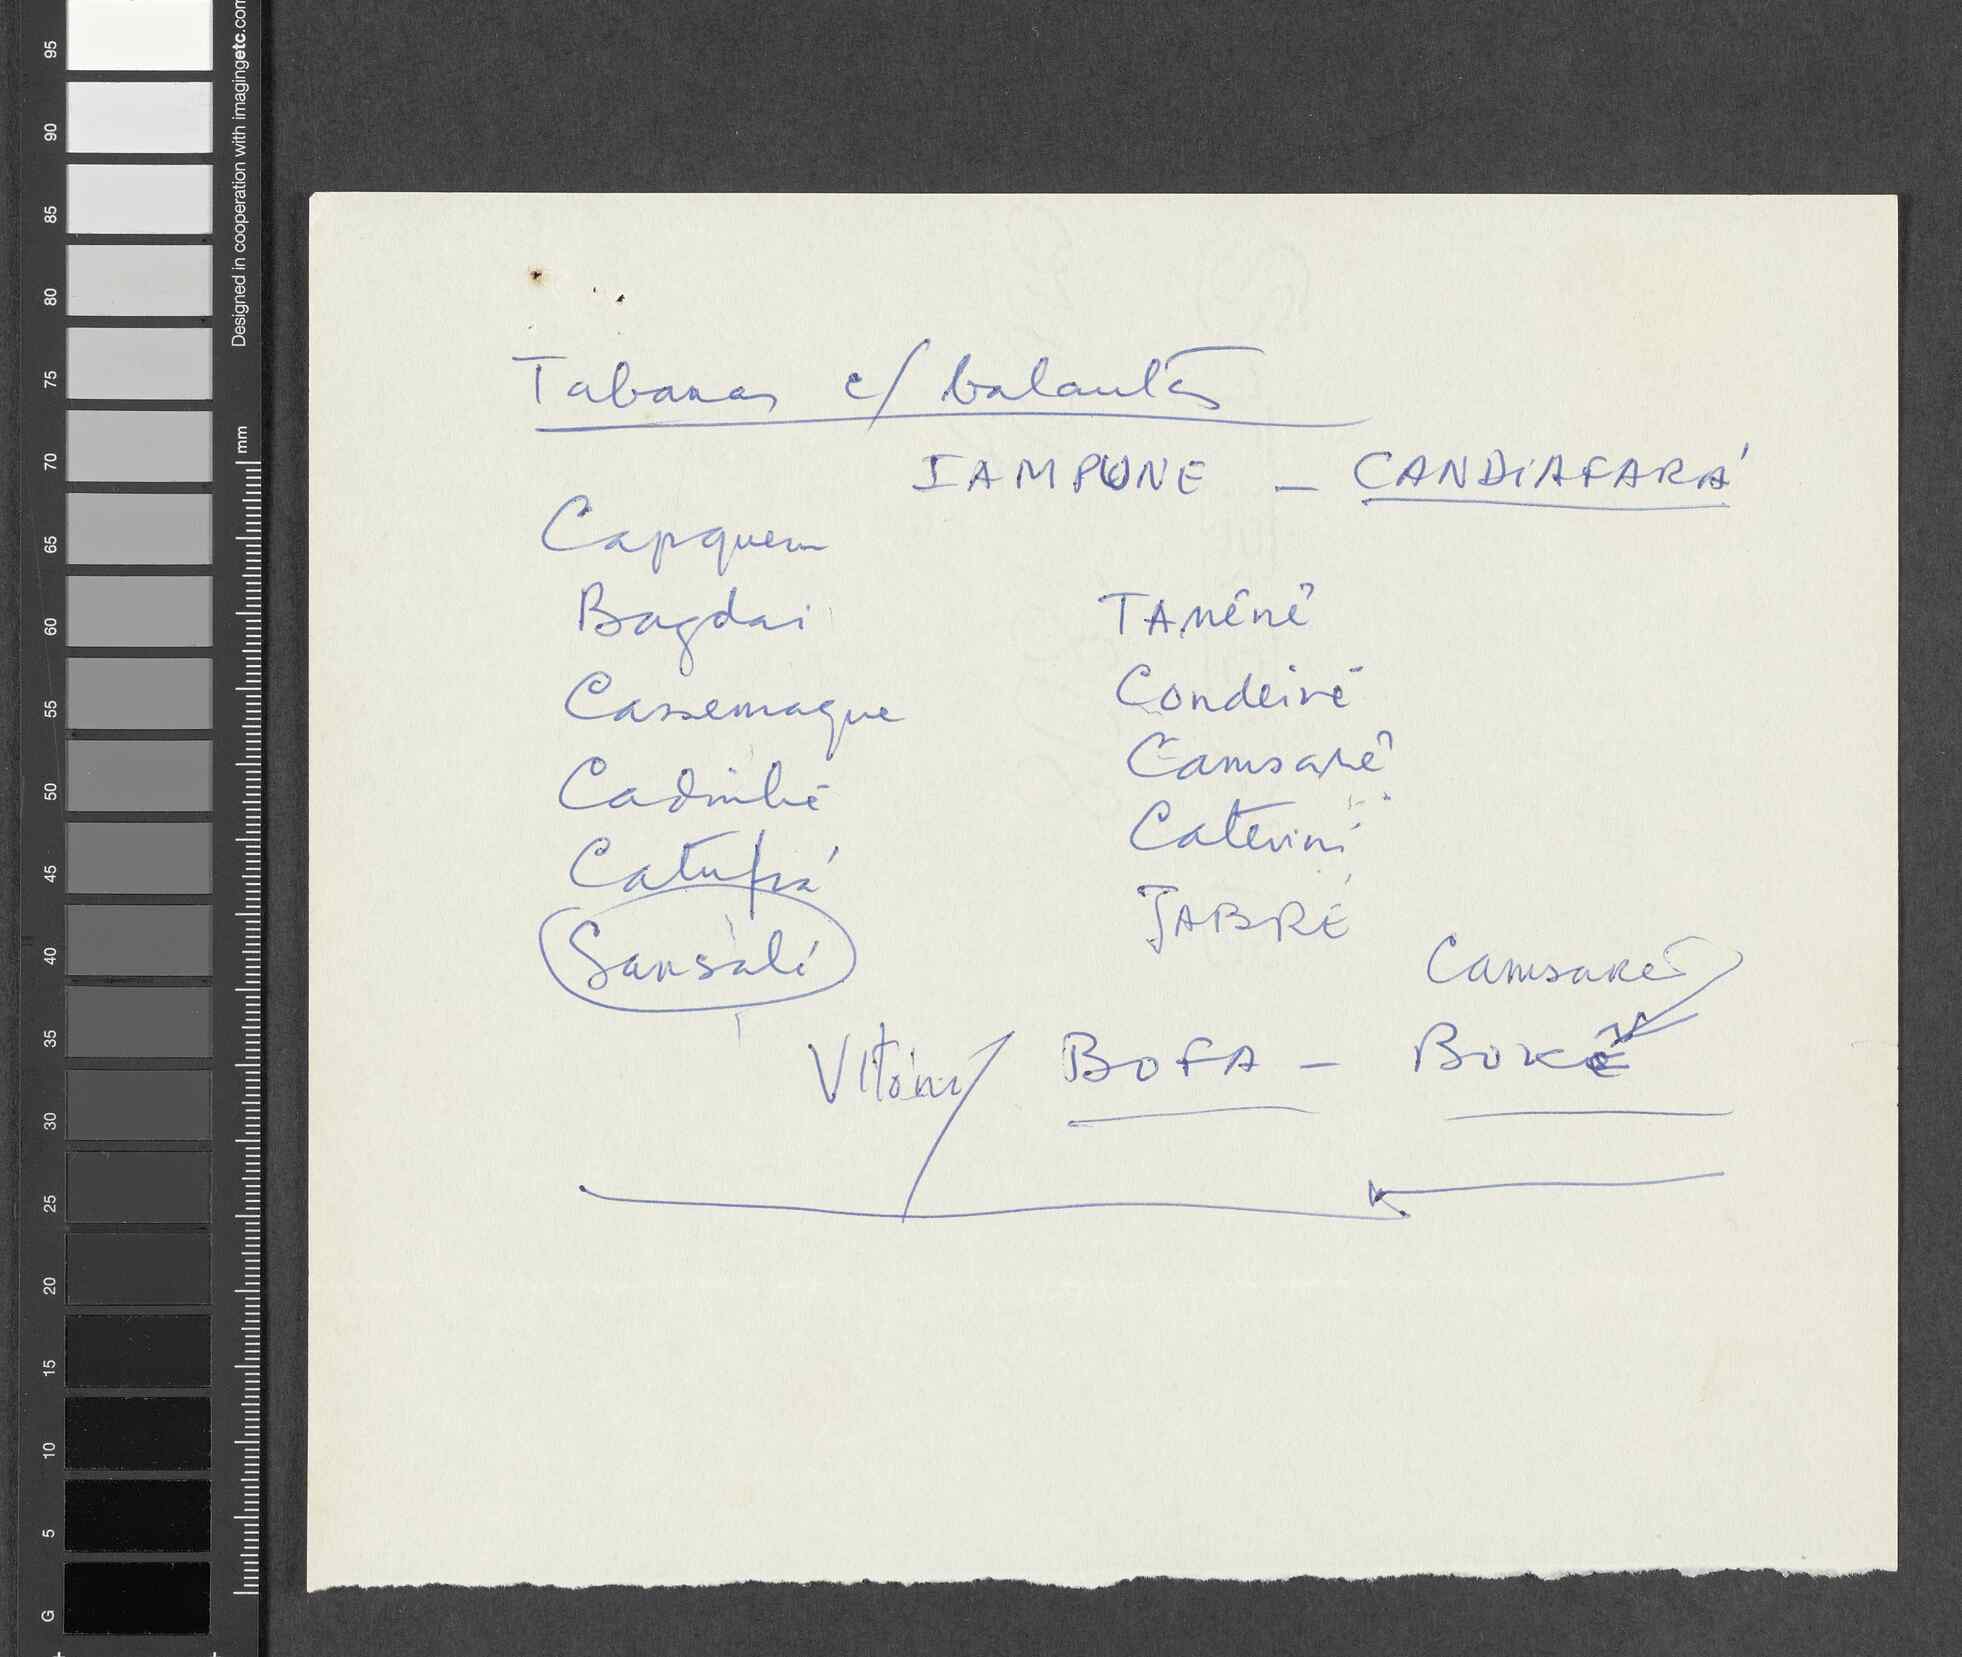 Tabanas c/ balantas
IAMPUNE - CANDIAFARÁ
Capquem
Bagdai
Cassemaque
Catufiá
Sansalé
TAnênê
Condeiré
Camsarê
Caterini
JABRÉ
Camsarê
BOFA - BOKÉ
95
90
85
80
75
70
65
60
55
50
45
40
35
30
25
20
15
10
5
G
mm
Designed in cooperation with imagingetc.com